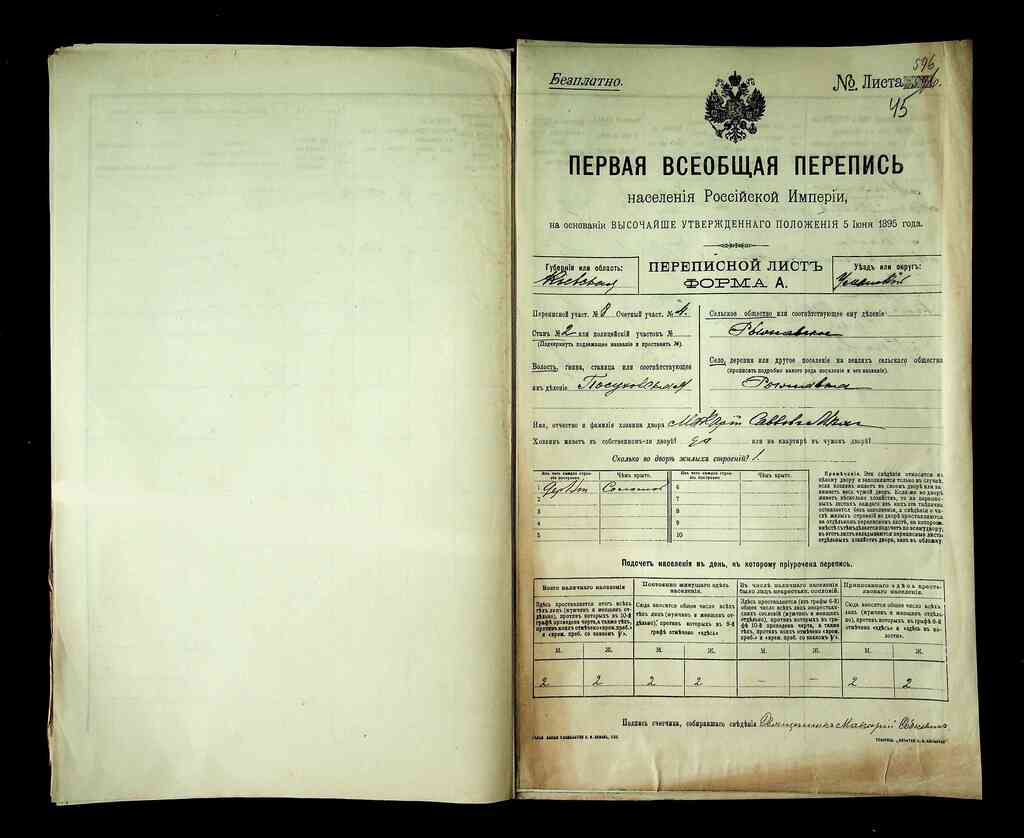 Безплатно.
№ Листа
596
45
ПЕРВАЯ ВСЕОБЩАЯ ПЕРЕПИСЬ
населенія Россійской Имперіи,
на основаніи ВЫСОЧАЙШЕ УТВЕРЖДЕННАГО ПОЛОЖЕНІЯ 5 Іюня 1895 года.
Губернія или область:
Кіевская
ПЕРЕПИСНОЙ ЛИСТЪ
ФОРМА А.
Уѣздъ или округъ:
Уманскій
Переписной участ. № 8 Счетный участ. № 4.
Станъ № 2 или полицейскій участокъ №
(Подчеркнуть подлежащее названіе и проставить №).
Волость, гмина, станица или соотвѣтствующее
имъ дѣленіе
Сельское общество или соотвѣтствующее ему дѣленіе
Село, деревня или другое поселеніе на земляхъ сельскаго общества
(прописать подробно какого рода поселеніе и его названіе).
Имя, отчество и фамилія хозяина двора
Хозяинъ живетъ въ собственномъ-ли дворѣ? да или на квартирѣ въ чужомъ дворѣ?
Сколько во дворѣ жилыхъ строеній? 1.
Изъ чего каждое строеніе построено. Чѣмъ крыто. Изъ чего каждое строеніе построено. Чѣмъ крыто.
1 Соломой 6
2 7
3 8
4 9
5 10
Примѣчаніе. Эти свѣдѣнія относятся къ
цѣлому двору и заполняются только въ случаѣ,
если хозяинъ живетъ въ своемъ дворѣ или занимаетъ
весь чужой дворъ. Если же во дворѣ
живетъ нѣсколько хозяйствъ, то на переписныхъ
листахъ каждаго изъ нихъ эта табличка
оставляется безъ заполненія, а свѣдѣнія о числѣ
жилыхъ строеній во дворѣ проставляются
на отдѣльномъ переписномъ листѣ, на которомъ
вмѣстѣ съ тѣмъ дѣлается подсчетъ по всему двору;
въ этотъ листъ вкладываются переписные листы
отдѣльныхъ хозяйствъ двора, какъ въ обложку.
Подсчетъ населенія въ день, къ которому пріурочена перепись.
Всего наличнаго населенія
Здѣсь проставляется итогъ всѣхъ
тѣхъ лицъ (мужчинъ и женщинъ отдѣльно),
противъ которыхъ въ 10-й
графѣ проведена черта, а также тѣхъ,
противъ коихъ отмѣчено «врем. преб.»
Постоянно живущаго здѣсь
населенія.
Сюда вносится общее число всѣхъ
тѣхъ лицъ (мужчинъ и женщинъ отдѣльно),
противъ которыхъ въ 8-й
графѣ отмѣчено «здѣсь»
Въ числѣ наличнаго населенія
было лицъ некрестьян. сословій.
Здѣсь проставляется (изъ графы 6-й)
общее число всѣхъ лицъ некрестьянскихъ
сословій (мужчинъ и женщинъ
отдѣльно), противъ которыхъ въ графѣ
10-й проведена черта, а также
тѣхъ, противъ коихъ отмѣчено «врем.
преб.»
Приписаннаго здѣсь крестьянскаго
населенія.
Сюда вносится общее число всѣхъ
лицъ (мужчинъ и женщинъ отдѣльно),
противъ которыхъ въ графѣ 6-й
отмѣчено «здѣсь» и «здѣсь въ волости».
М. Ж. М. Ж. М. Ж. М. Ж.
2 2 2 2 — — 2 2
Подпись счетчика, собиравшаго свѣдѣнія Священникъ Макарій